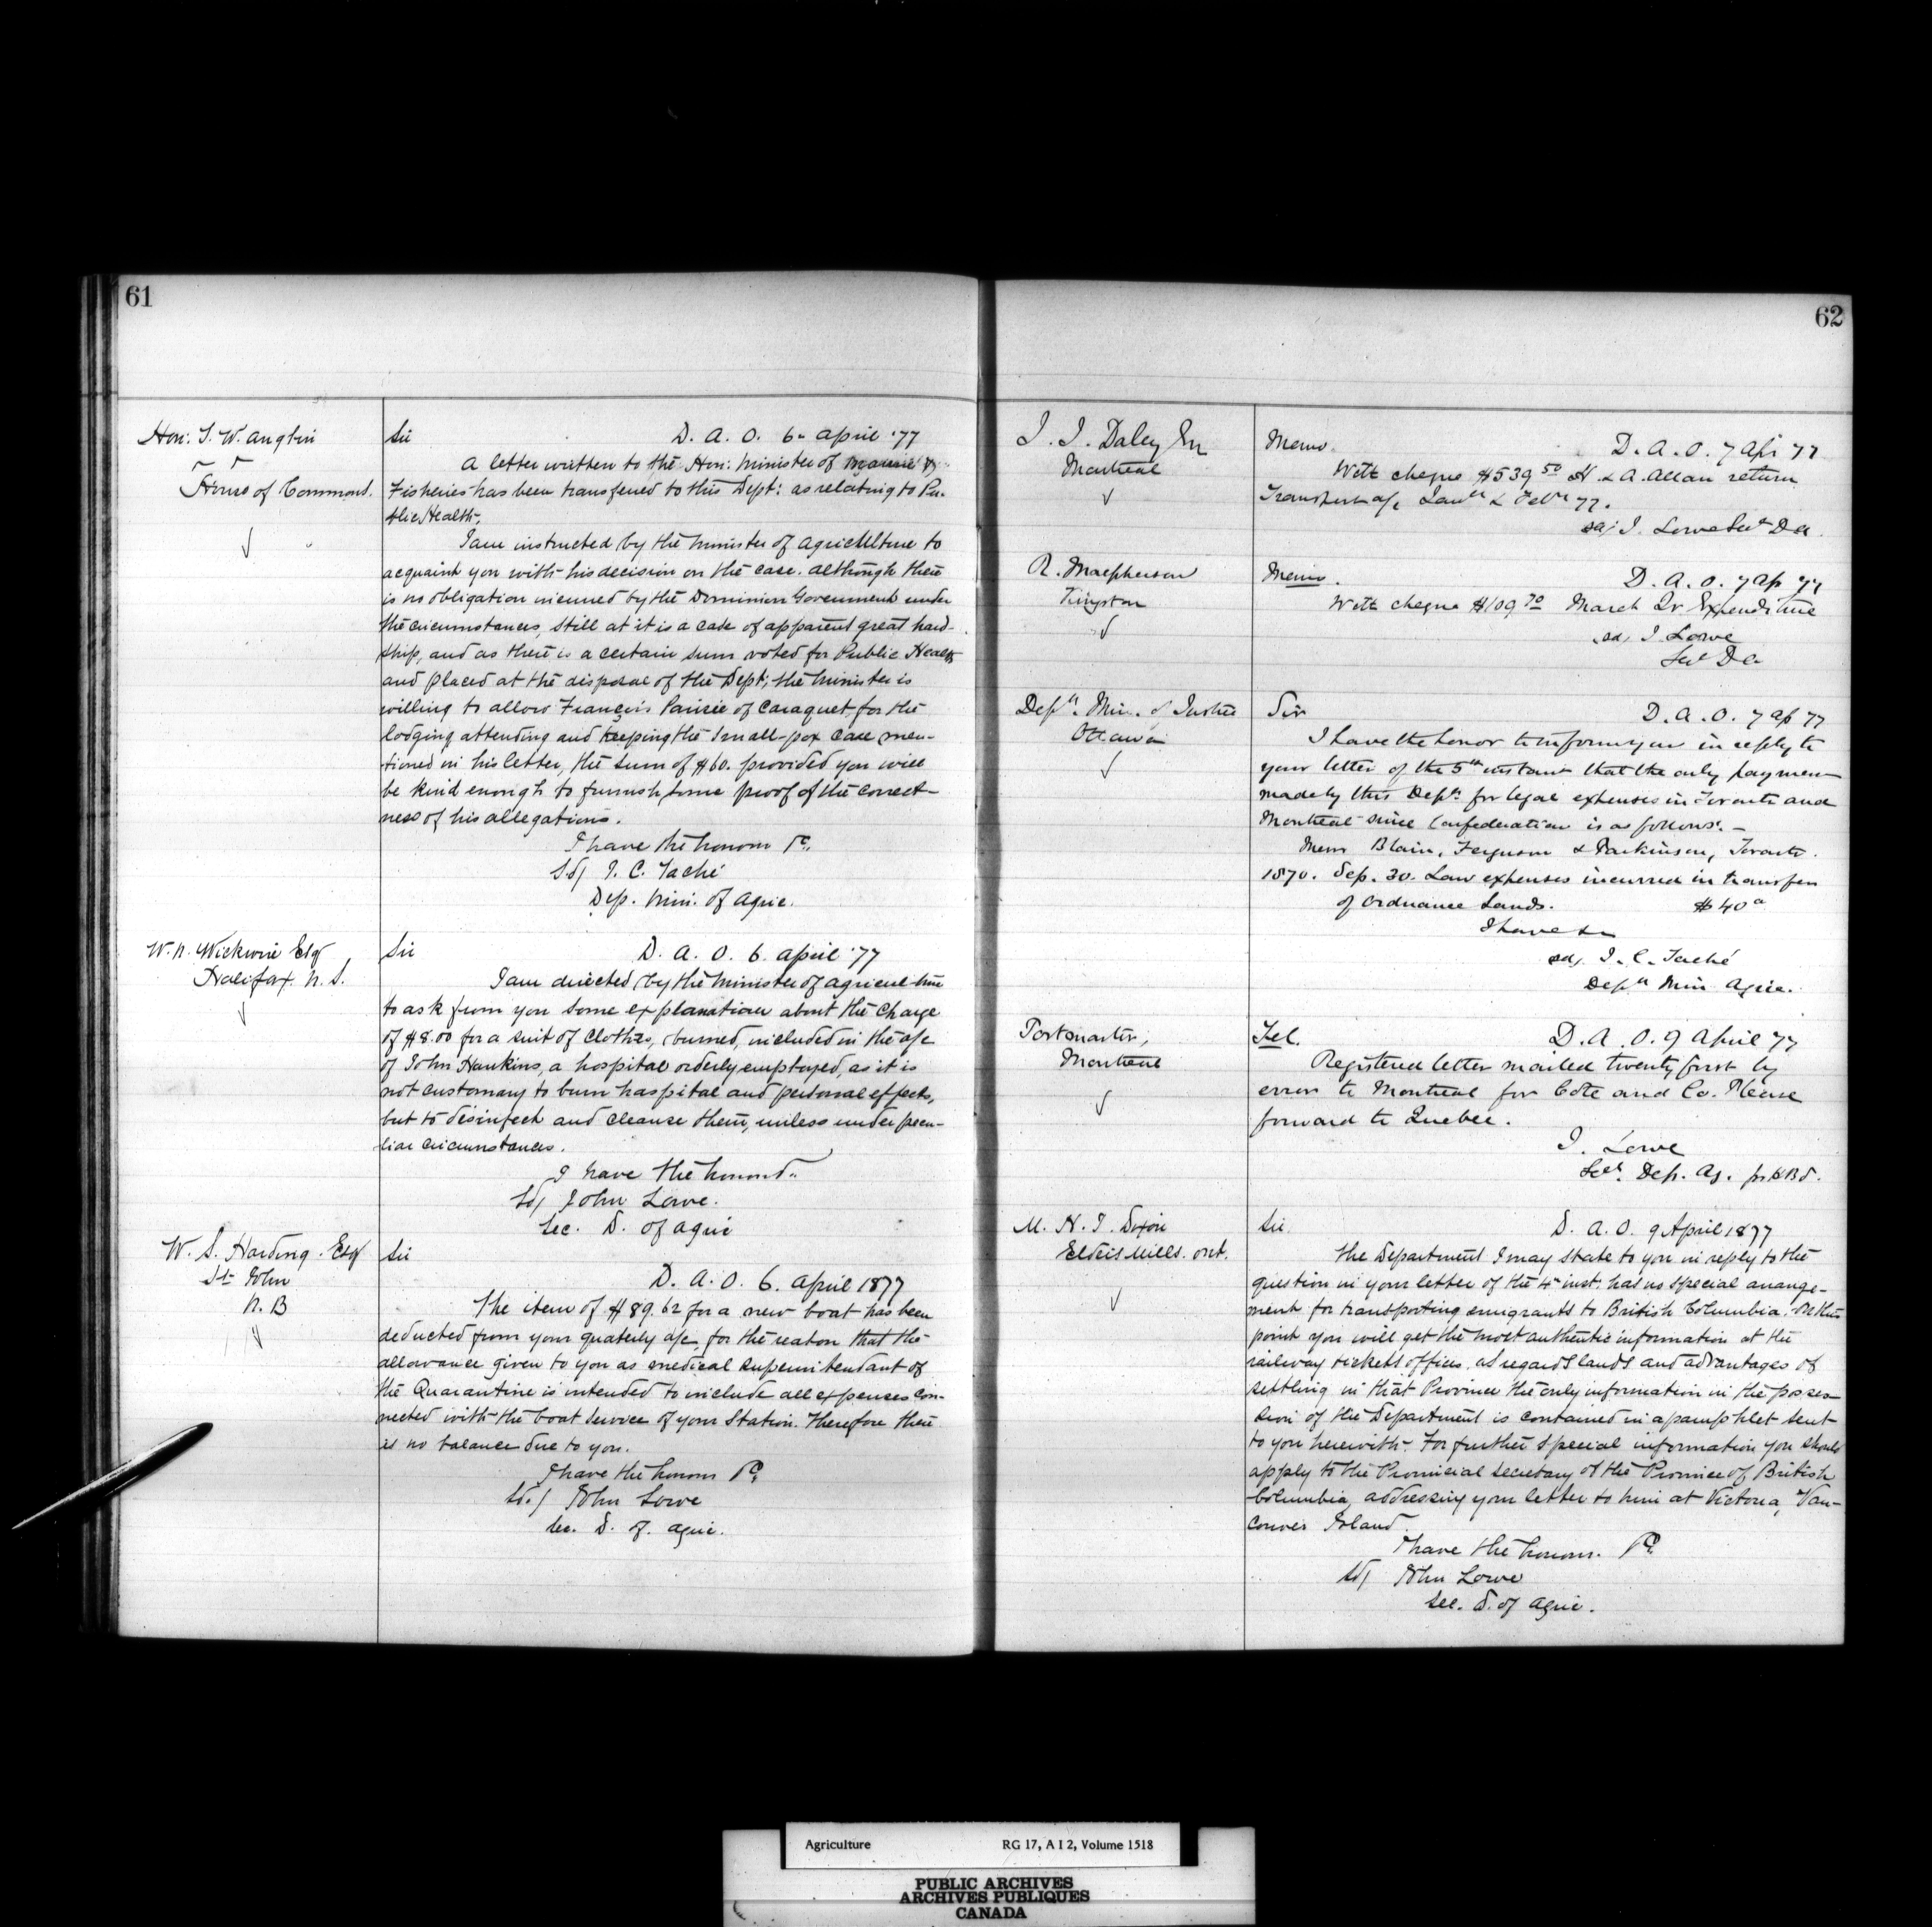 61
Hon: T. W. Anglin
House of Commons.
Sir D. A. O. 6 April '77
A letter written to the Hon: Minister of Marine &
Fisheries has been transferred to this Dept: as relating to Pu-
blic Health.
I am instructed by the Minister of Agriculture to
acquaint you with his decision on the case. Although there
is no obligation incurred by the Dominion Government under
the circumstances, still at it is a case of apparent great hard-
ship, and as there is a certain sum voted for Public Health
and placed at the disposal of the Dept; the Minister is
willing to allow François of Caraquet, for the
lodging attending and keeping the Small-pox Case men-
tioned in his letter, the sum of $60. provided you will
be kind enough to furnish some proof of the correct-
ness of his allegations.
I have the honour &c.
Sd/ J. C. Taché
Dep. Min. of Agric.
W. N. Wickwire Esq
Halifax N. S.
Sir D. A. O. 6. April '77
I am directed by the Minister of Agriculture
to ask from you some explanation about the charge
of $8.00 for a suit of clothes, burned, included in the a/c
of John Hawkins, a hospital orderly employed, as it is
not customary to burn hospital and personal effects,
but to disinfect and cleanse them, unless under pecu-
liar circumstances.
I have the honour
Sd/ John Lowe.
Sec. D. of Agric
W. S. Harding. Esq
St John
N. B
Sir
D. A. O. 6. April 1877
The item of $89.62 for a new boat has been
deducted from your quaterly a/c, for the reason that the
allowance given to you as medical superintendant of
the Quarantine is intended to include all expenses con-
nected with the boat service of your Station. Therefore there
is no balance due to you.
I have the honour &c.
Sd./ John Lowe
Sec. D. of. Agric.
62
J. J. Daley
Montreal
Memo. D. A. O. 7 Apr 77
With cheque $539 50 H. & A. Allan return
Transport a/c Jany & Feby 77.
sd/ J. Lowe Secy DA.
R. Macpherson
Kingston
Memo. D. A. O. 7 Ap 77
With cheque $109 70 March Qr Expenditure
sd/ J. Lowe
Secy DA
Depty. Min. of Justice
Ottawa
Sir D. A. O. 7 Ap 77
I have the honor to inform you in reply to
your letter of the 5th instant that the only paymen
made by this Dept. for legal expenses in Toronto and
Montreal since Confederation is as follows. —
Messrs Blain, Ferguson & Parkinson, Toronto.
1870. Sep. 30. Law expenses incurred in transfer
of Ordnance Lands. $40
I have &c
sd/ J. C. Taché
Depty Min Agric.
Postmaster,
Montreal
Tel. D. A. O. 9 April 77
Registered letter mailed twenty first by
error to Montreal for Cote and Co. Please
forward to Quebec.
J. Lowe
Secy. Dep. Ag.
M. N. J. Dixon
Elders Mills. Ont.
Sir. D. A. O. 9 April 1877
The Department I may state to you in reply to the
question in your letter of the 4th inst. has no special arrange-
ment for transporting emigrants to British Columbia. On this
point you will get the most authentic information at the
railway tickets offices. As regards lands and advantages of
settling in that Province the only information in the posses-
sion of the Department is contained in a pamphlet sent
to you herewith. For further special information you should
apply to the Provincial Secretary of the Province of British
Columbia, addressing your letter to him at Victoria, Van-
couver Island.
I have the honour. &c.
Sd/ John Lowe
Sec. D. of Agric.
Agriculture RG 17, A I 2, Volume 1518
PUBLIC ARCHIVES
ARCHIVES PUBLIQUES
CANADA